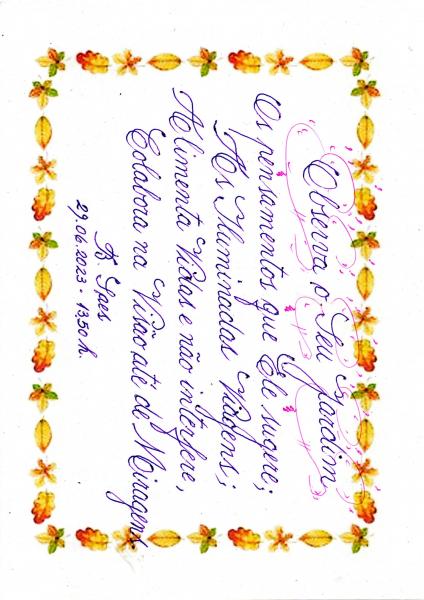 Observa o Seu Jardim
Os pensamentos que Ele sugere;
As Iluminadas Viagens;
Alimenta Vidas e não interfere,
Colabora na Visão até de Miragens
B. Saes
29.06.2023 - 13,50 h.